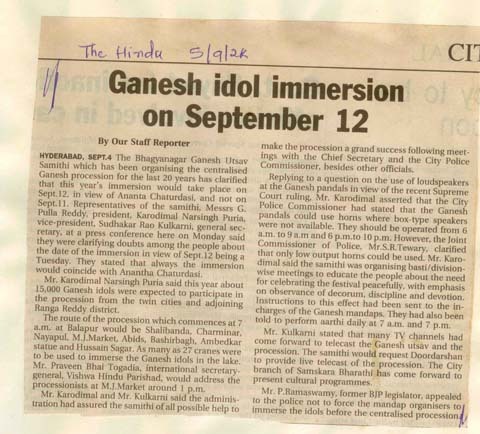 The Hindu 5/9/2K
CIT
Ganesh idol immersion
on September 12
By Our Staff Reporter
HYDERABAD, SEPT.4 The Bhagyanagar Ganesh Utsav
Samithi which has been organising the centralised
Ganesh procession for the last 20 years has clarified
that this year's immersion would take place on
Sept.12, in view of Ananta Chaturdasi, and not on
Sept.11. Representatives of the samithi, Messrs G.
Pulla Reddy, president, Karodimal Narsingh Puria,
vice-president, Sudhakar Rao Kulkarni, general sec-
retary, at a press conference here on Monday said
they were clarifying doubts among the people about
the date of the immersion in view of Sept.12 being a
Tuesday. They stated that always the immersion
would coincide with Anantha Chaturdasi.
Mr. Karodimal Narsingh Puria said this year about
15,000 Ganesh idols were expected to participate in
the procession from the twin cities and adjoining
Ranga Reddy district.
The route of the procession which commences at 7
a.m. at Balapur would be Shalibanda, Charminar,
Nayapul, M.J.Market, Abids, Bashirbagh, Ambedkar
statue and Hussain Sagar. As many as 27 cranes were
to be used to immerse the Ganesh idols in the lake.
Mr. Praveen Bhai Togadia, international secretary-
general, Vishwa Hindu Parishad, would address the
processionists at M.J.Market around 1 pm.
Mr. Karodimal and Mr. Kulkarni said the adminis-
tration had assured the samithi of all possible help to
make the procession a grand success following meet-
ings with the Chief Secretary and the City Police
Commissioner, besides other officials.
Replying to a question on the use of loudspeakers
at the Ganesh pandals in view of the recent Supreme
Court ruling, Mr. Karodimal asserted that the City
Police Commissioner had stated that the Ganesh
pandals could use horns where box-type speakers
were not available. They should be operated from 6
a.m. to 9 a.m and 6 p.m.to 10 p.m. However, the Joint
Commissioner of Police, Mr.S.R.Tewary, clarified
that only low output horns could be used. Mr. Karo-
dimal said the samithi was organising basti/division-
wise meetings to educate the people about the need
for celebrating the festival peacefully, with emphasis
on observance of decorum, discipline and devotion.
Instructions to this effect had been sent to the in-
charges of the Ganesh mandaps. They had also been
told to perform aarthi daily at 7 a.m. and 7 p.m.
Mr. Kulkarni stated that many TV channels had
come forward to telecast the Ganesh utsav and the
procession. The samithi would request Doordarshan
to provide live telecast of the procession. The City
branch of Samskara Bharathi has come forward to
present cultural programmes.
Mr. P.Ramaswamy, former BJP legislator, appealed
to the police not to force the mandap organisers to
immerse the idols before the centralised procession